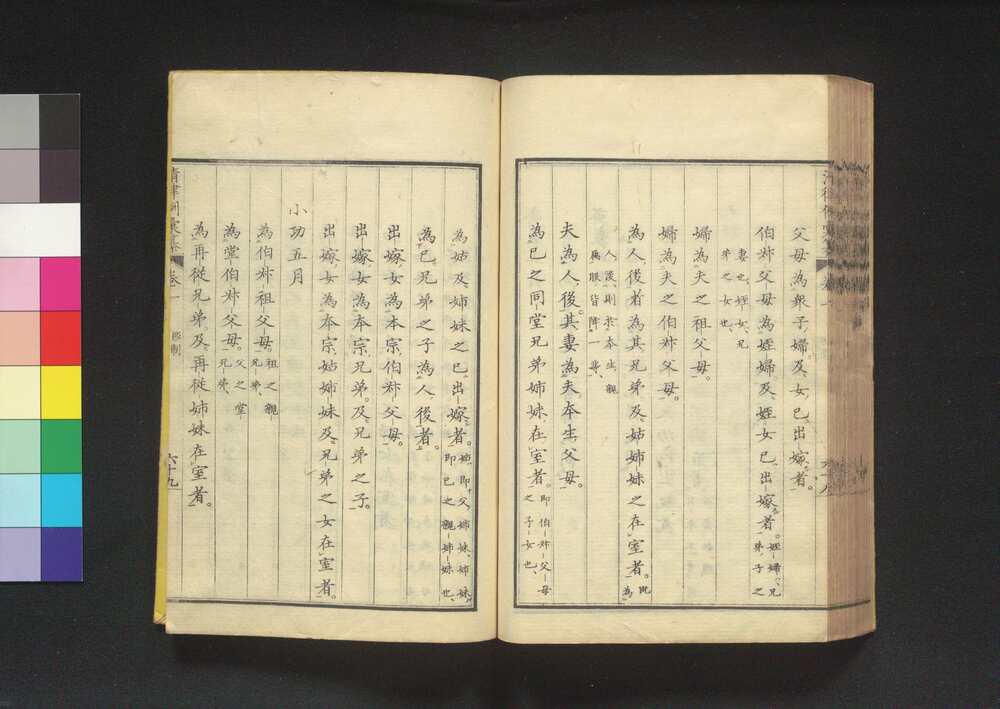 父母為衆子婦及女已出嫁者。
伯叔父母為姪婦及姪女已出嫁者。姪婦、兄弟子之
妻也、姪女、兄弟之女也、
婦為夫之祖父母。
婦為夫之伯叔父母。
為人後者為其兄弟及姑姊妹之在室者。既為
人後、則於本生親屬服皆降一等、
夫為人後。其妻為夫本生父母。
為己之同堂兄弟姉妹在室者。即伯叔父母之子女也、
為姑及姉妹之已出嫁者。姑、即父姉妹、姉妹、即己之親姉妹也、
為己兄弟之子為人後者。
出嫁女為本宗伯叔父母。
出嫁女為本宗兄弟。及兄弟之子。
出嫁女為本宗姑姉妹及兄弟之女在室者。
小功五月
為伯叔祖父母。祖之親兄弟、
為堂伯叔父母。父之堂兄弟、
為再從兄弟。及再從姉妹在室者。
卷一
六十九